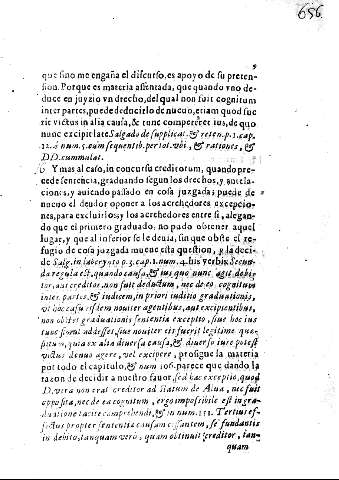 656
9
que sino me engaña el discurso, es apoyo de su preten-
sion. Porque es materia assentada, que quando vno de-
duce en juyzio vn drecho, del qual non fuit cognitum
inter partes, puede deducirlo de nuevo, etiam quod fue
rit victus in alia causa, & tunc competeret ius, de quo
nunc excipit late Salgado de supplicat. & reten. p. 1. cap.
12. à num. 5. cum sequentib. per tot. vbi, & rationes, &
DD. cummulat.
6 Y mas al caso, in concursu creditorum, quando pre-
cede sentencia, graduando segun los drechos, y antela-
ciones, y auiendo passado en cosa juzgada; puede de
nueuo el deudor oponer a los acrehedores excepcio-
nes, para excluirlos; y los acrehedores entre si, alegan-
do que el primero graduado, no pudo obtener aquel
lugar, y que al inferior se le deuia, sin que obste el re-
fugio de cosa juzgada mueue esta question, y la deci-
de Salg. in laberynto p. 3. cap. 1. num. 4. his verbis Secun-
da regula est, quando causa, & ius quo nunc agit debi-
tor, aut creditor, non fuit deductum, nec de eo cognitum
inter partes, & iudicem, in priori iuditio graduationis,
vt hoc casu eisdem nouiter agentibus, aut excipientibus,
non obstet graduationis sententia exceptio, siue hoc ius
tunc foret addesset, siue nouiter eis fuerit legitime quæ-
situm, quia ex alia diuersa causa, & diuerso iure potest
victus denuo agere, vel excipere, prosigue la materia
por todo el capitulo, & num. 106. parece que dando la
razon de decidir a nuestro fauor, sed hac exceptio, quod
D. vera non erat creditor ad statum de Alua, nec fuit
opposita, nec de ea cognitum, ergo impossibile est in gra-
duatione tacite comprehendi, & in num. 151. Tertius ef-
fectus propter sententia causam cessantem, se fundantis
in debito, tanquam vero, quam obtinuit creditor, tan-
quam